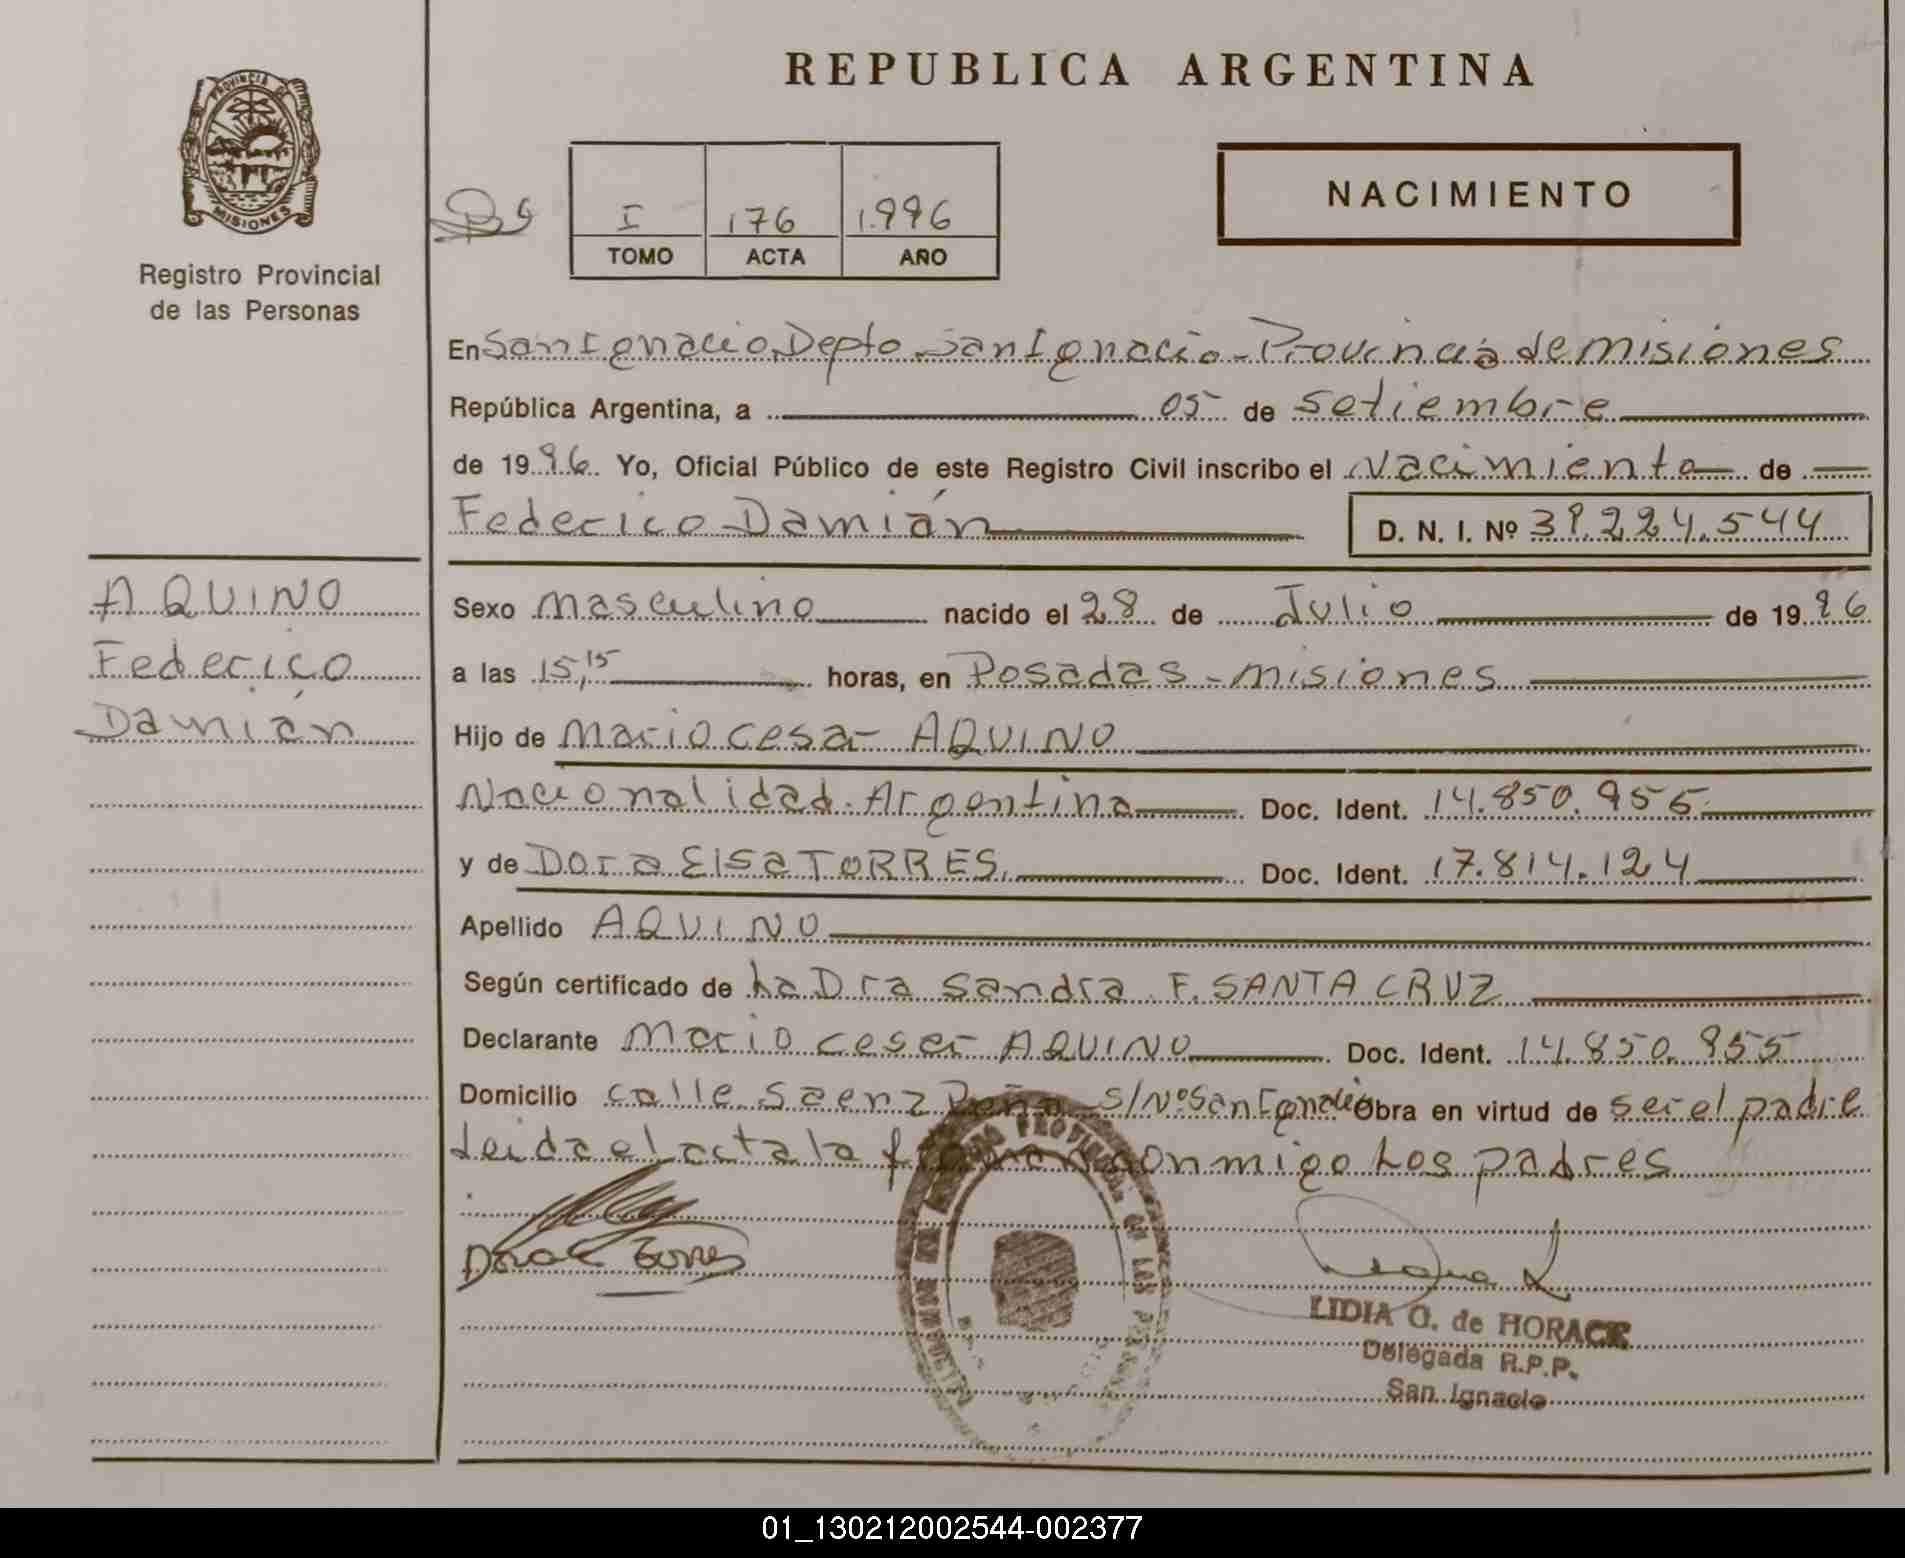 REPUBLICA ARGENTINA
PROVINCIA DE
MISIONES
Registro Provincial
de las Personas
I 176 1.996
TOMO ACTA AÑO
NACIMIENTO
En San Ignacio Depto San Ignacio - Provincia de misiones
República Argentina, a 05 de Setiembre
de 1996. Yo, Oficial Público de este Registro Civil inscribo el Nacimiento de
Federico Damián
D. N. I. Nº 39.224.544
AQUINO
Federico
Damián
Sexo masculino nacido el 28 de Julio de 1996
a las 15,15 horas, en Posadas - misiones
Hijo de Mario Cesar AQUINO
Nacionalidad Argentina Doc. Ident. 14.850.955
y de Dora Elsa TORRES. Doc. Ident. 17.814.124
Apellido AQUINO
Según certificado de La Dra Sandra F. SANTA CRUZ
Declarante Mario Cesar AQUINO Doc. Ident. 14.850.955
Domicilio calle Saenz Peña s/Nº San Ignacio Obra en virtud de ser el padre
Leida el acta la firman conmigo Los padres
Dora E Torres
LIDIA G. de HORACK
Delegada R.P.P.
San Ignacio
01_130212002544-002377